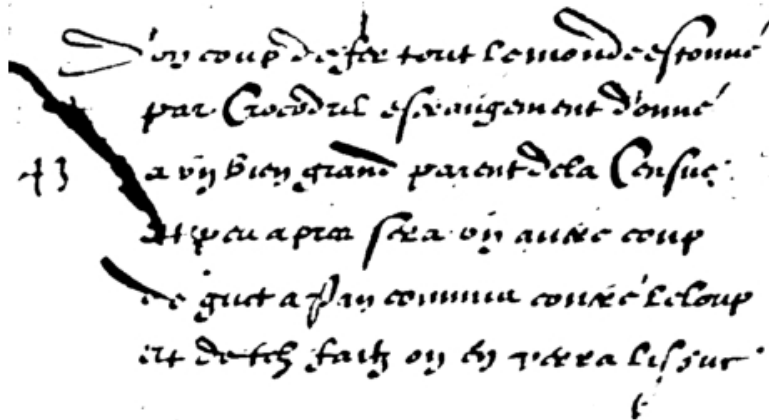 D'ŏn coup de fer tout le monde estonné
par Crocodril estrangement donné
43 a vn bien grand parent de la Censuë
Et peu apres sera vn autre coup
de guet a Pan commis contre le loup
et de telz faitz on en verra lissue